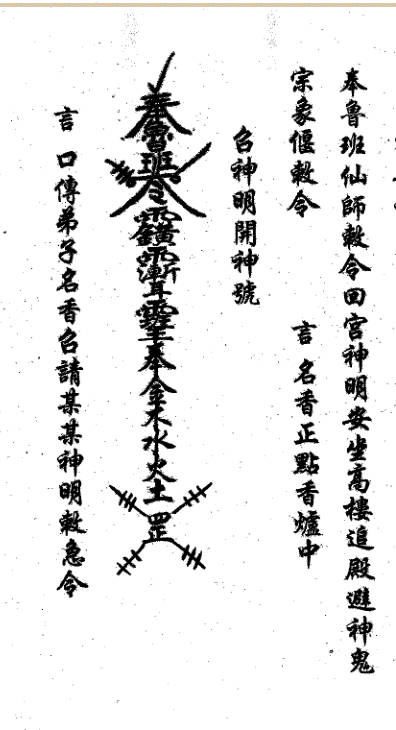 奉魯班仙師敕令回宮神明安坐高樓追殿避神鬼
宗象偃敕令 言名香正點香爐中
召神明開神號
奉魯班令 奉金木水火土罡
言口傳弟子名香召請某某神明敕急令